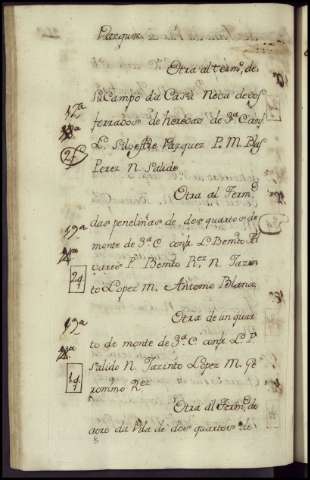 Vazquez
Otra al term.º de
Campo da Casa Nova de dos
ferrados de heredad de 3ª conf.
L. Silvestre Vazquez P. M. Blas
Perez N. Salido
2f
Otra al Term.º
das penelinas de dos quartos de
monte de 3ª C conf. L. Benito
P. Benito R.ez N. Jazin
to Lopez M. Antonio Blanco
2q
Otra de un quar
to de monte de 3ª C conf. L. P.
Salido N. Jazinto Lopez M. Ge
ronimo R.ez
1q
Otra al Term.º de
da Vila de dos quartos de